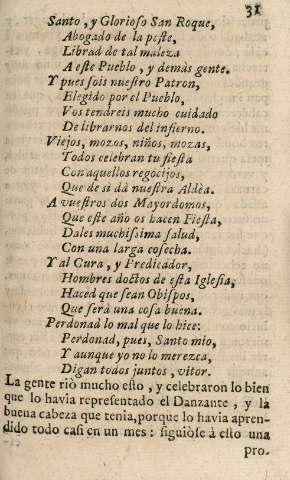 31
Santo, y Glorioso San Roque,
Abogado de la peste,
Librad de tal maleza
A este Pueblo, y demàs gente.
Y pues sois nuestro Patron,
Elegido por el Pueblo,
Vos tendreis mucho cuidado
De librarnos del infierno.
Viejos, mozos, niños, mozas,
Todos celebran tu fiesta
Con aquellos regocijos,
Que de sì dà nuestra Aldèa.
A vuestros dos Mayordomos,
Que este año os hacen Fiesta,
Dales muchissima salud,
Con una larga cosecha.
Y al Cura, y Predicador,
Hombres doctos de esta Iglesia,
Haced que sean Obispos,
Que serà una cosa buena.
Perdonad lo mal que lo hice:
Perdonad, pues, Santo mio,
Y aunque yo no lo merezca,
Digan todos juntos, vitor.
La gente riò mucho esto, y celebraron lo bien
que lo havia representado el Danzante, y la
buena cabeza que tenia, porque lo havia apren-
dido todo casi en un mes: siguiòse à esto una
pro-